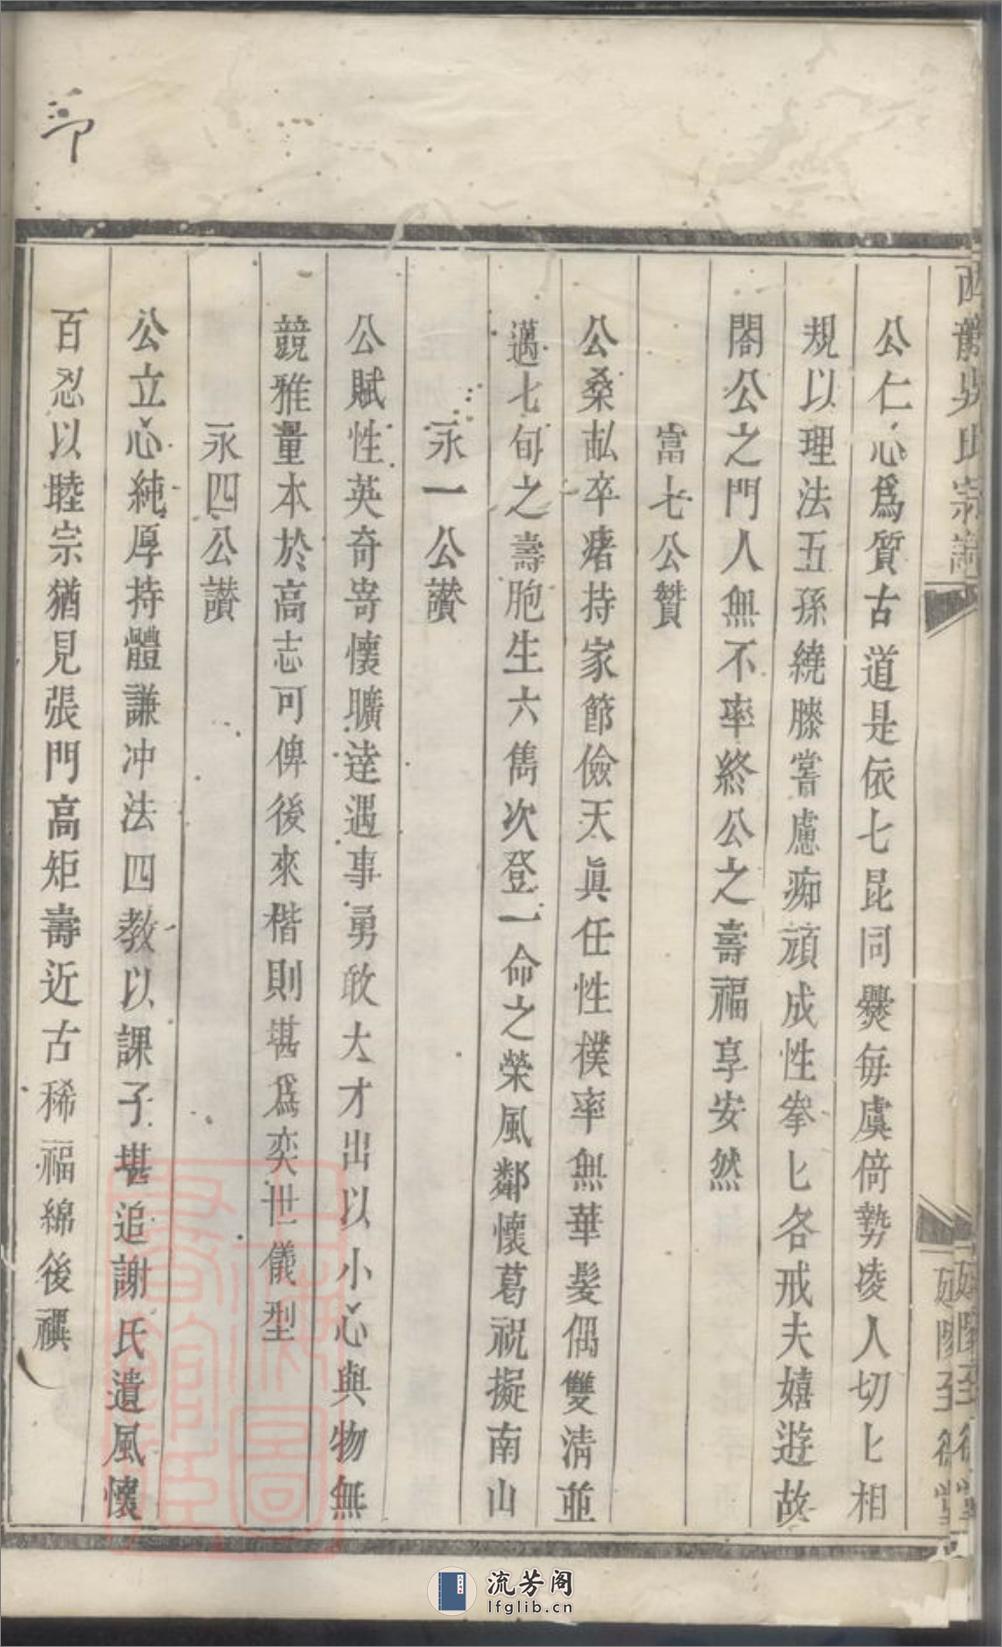 公仁心爲質古道是依七昆同爨每虞倚勢凌人切匕相
規以理法五孫繞膝嘗慮痴頑成性拳匕各戒夫嬉遊故
閤公之門人無不率終公之壽福享安然
富七公贊
公桑畆卒瘏持家節儉天眞任性樸率無華髮偶雙清並
邁七旬之壽胞生六雋次登一命之榮風鄰懷葛祝擬南山
永一公讃
公賦性英奇嵜懷曠逹遇事勇敢大才出以小心與物無
競雅量本於高志可俾後來楷則堪爲奕世儀型
永四公讃
公立心純厚持體謙冲法四教以課子堪追謝氏遺風懷
百忍以睦宗猶見張門高矩壽近古稀福綿後禩
流芳阁
lfglib.cn